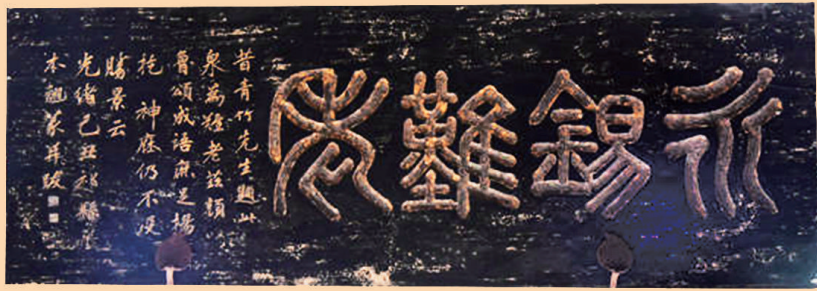 永錫難老
昔青竹先生題此
泉為難老茲額
魯頌成語庶足揚
神庥仍不没
勝景云
光緒己丑祁縣
本篆并跋